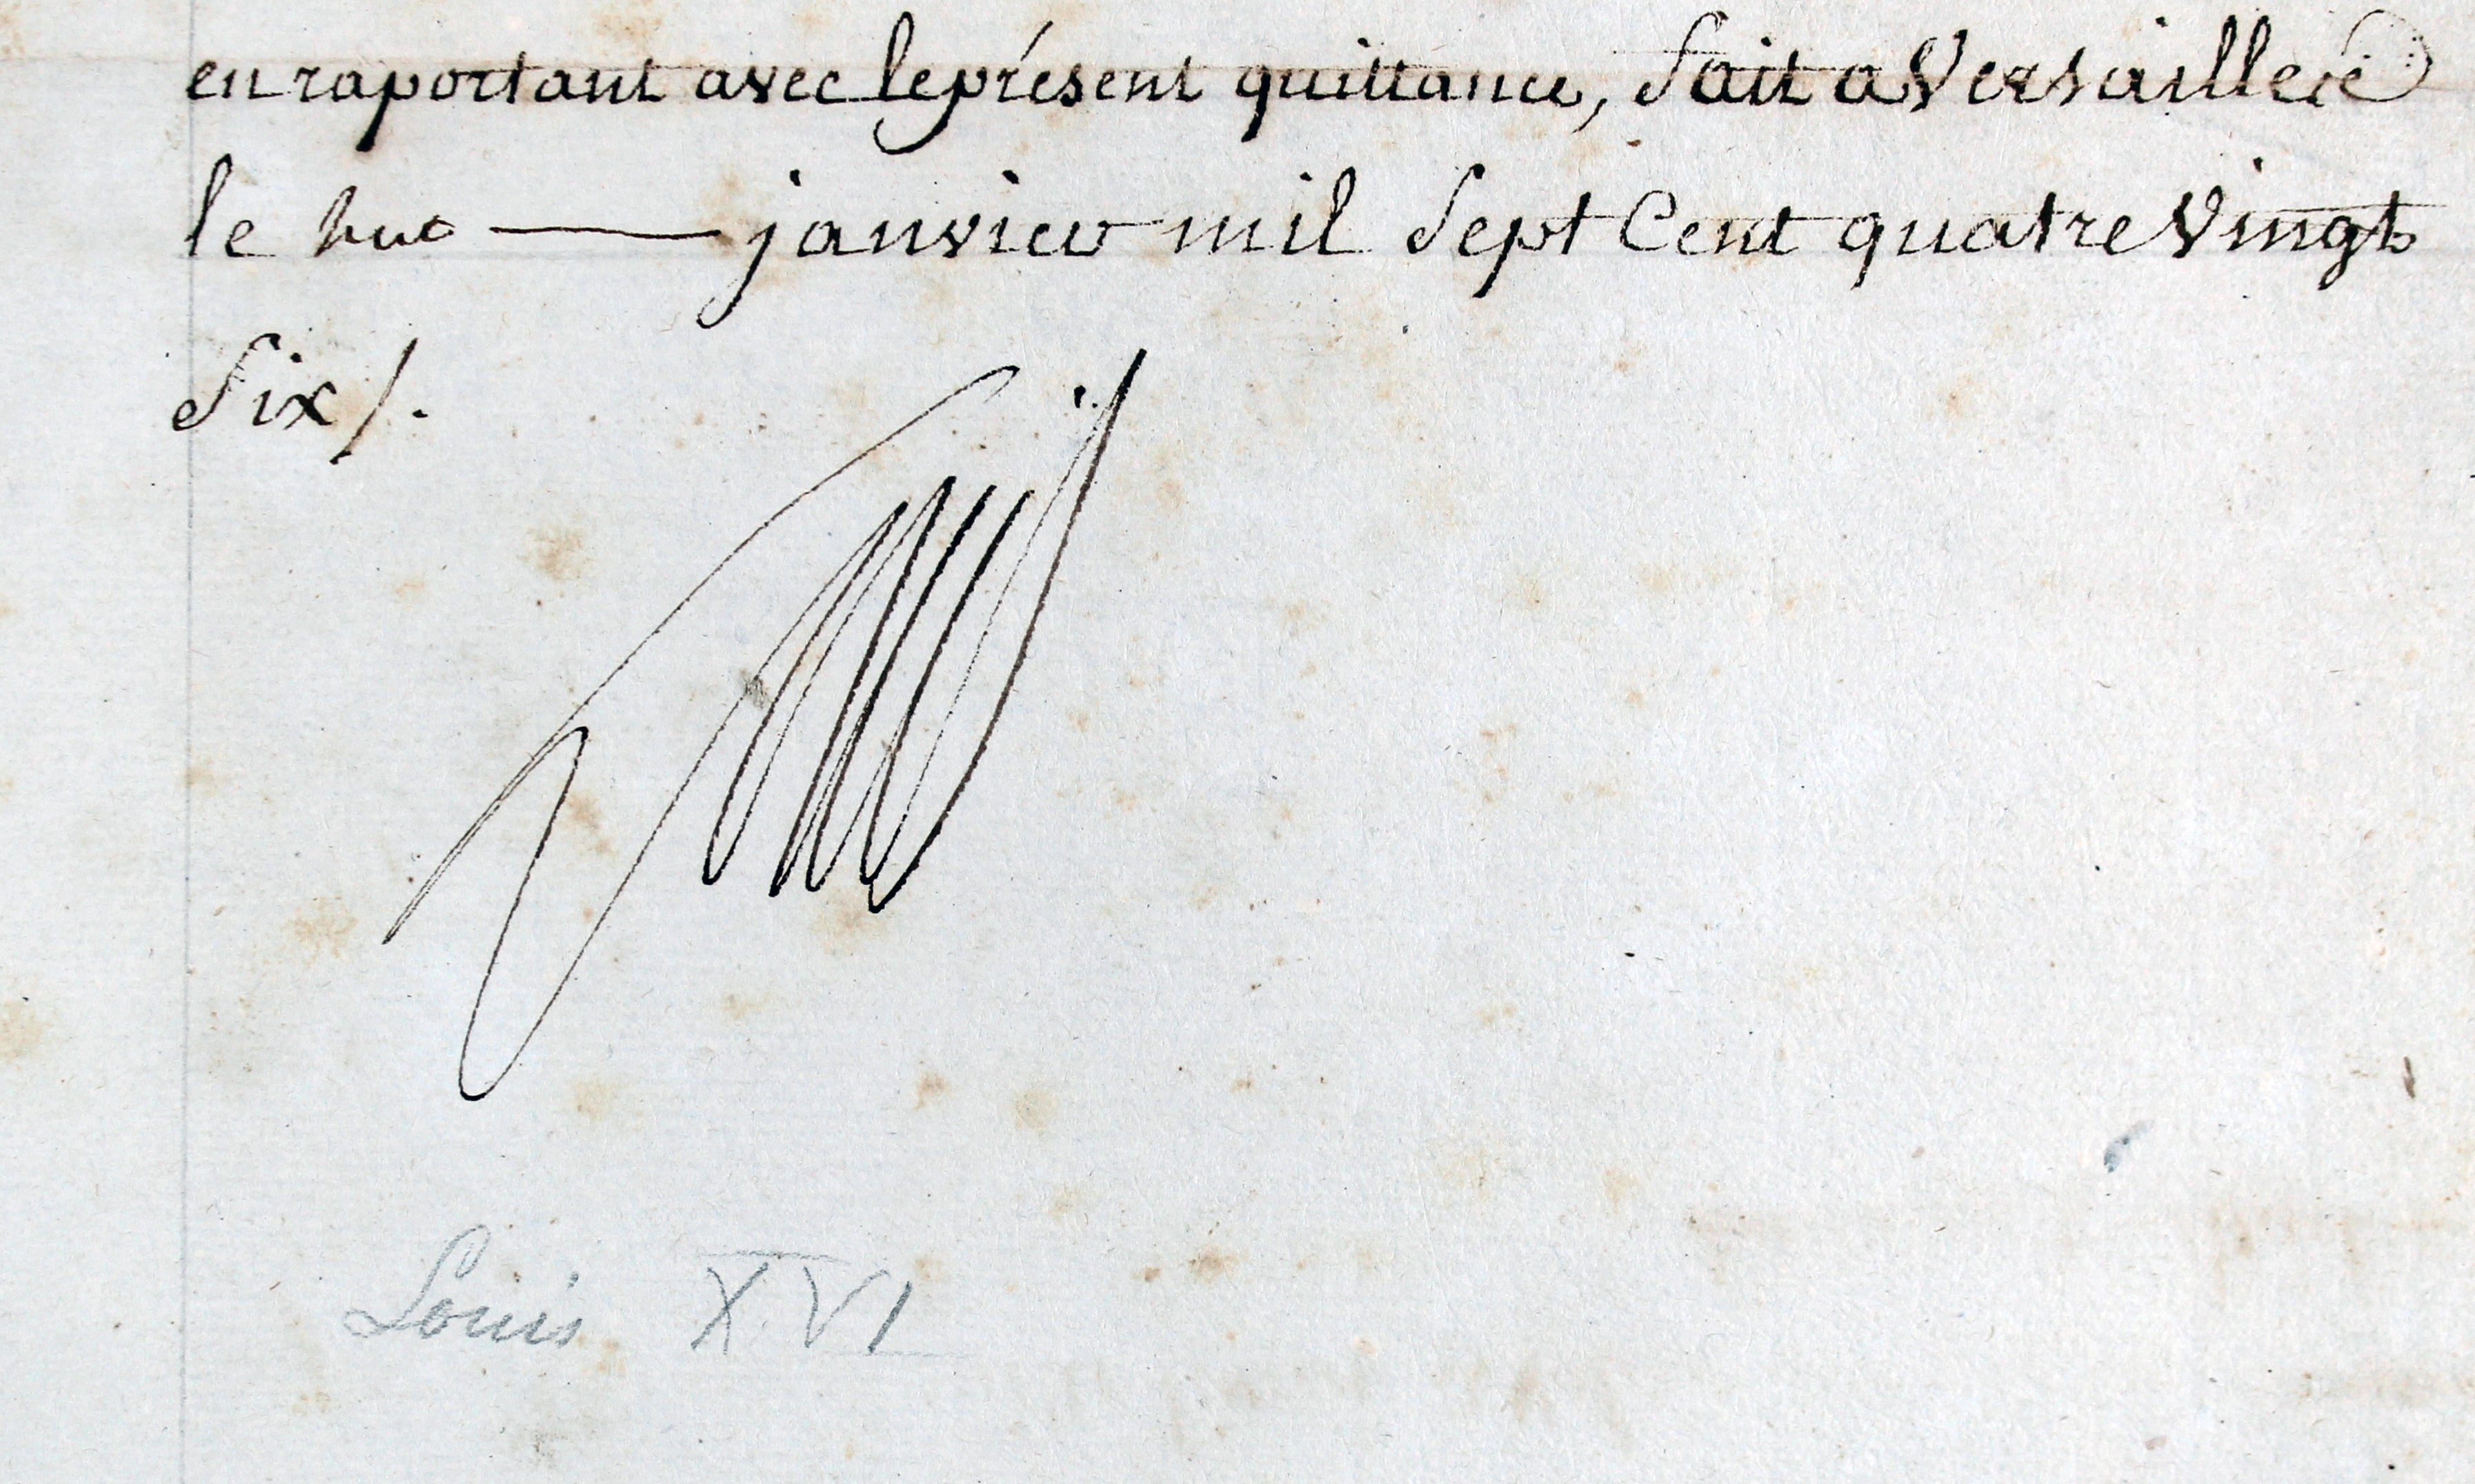 en raportant avec le présent quittance, fait a Versailles
le huit — janvier mil Sept Cent quatre Vingt
Six /.
Louis XVI